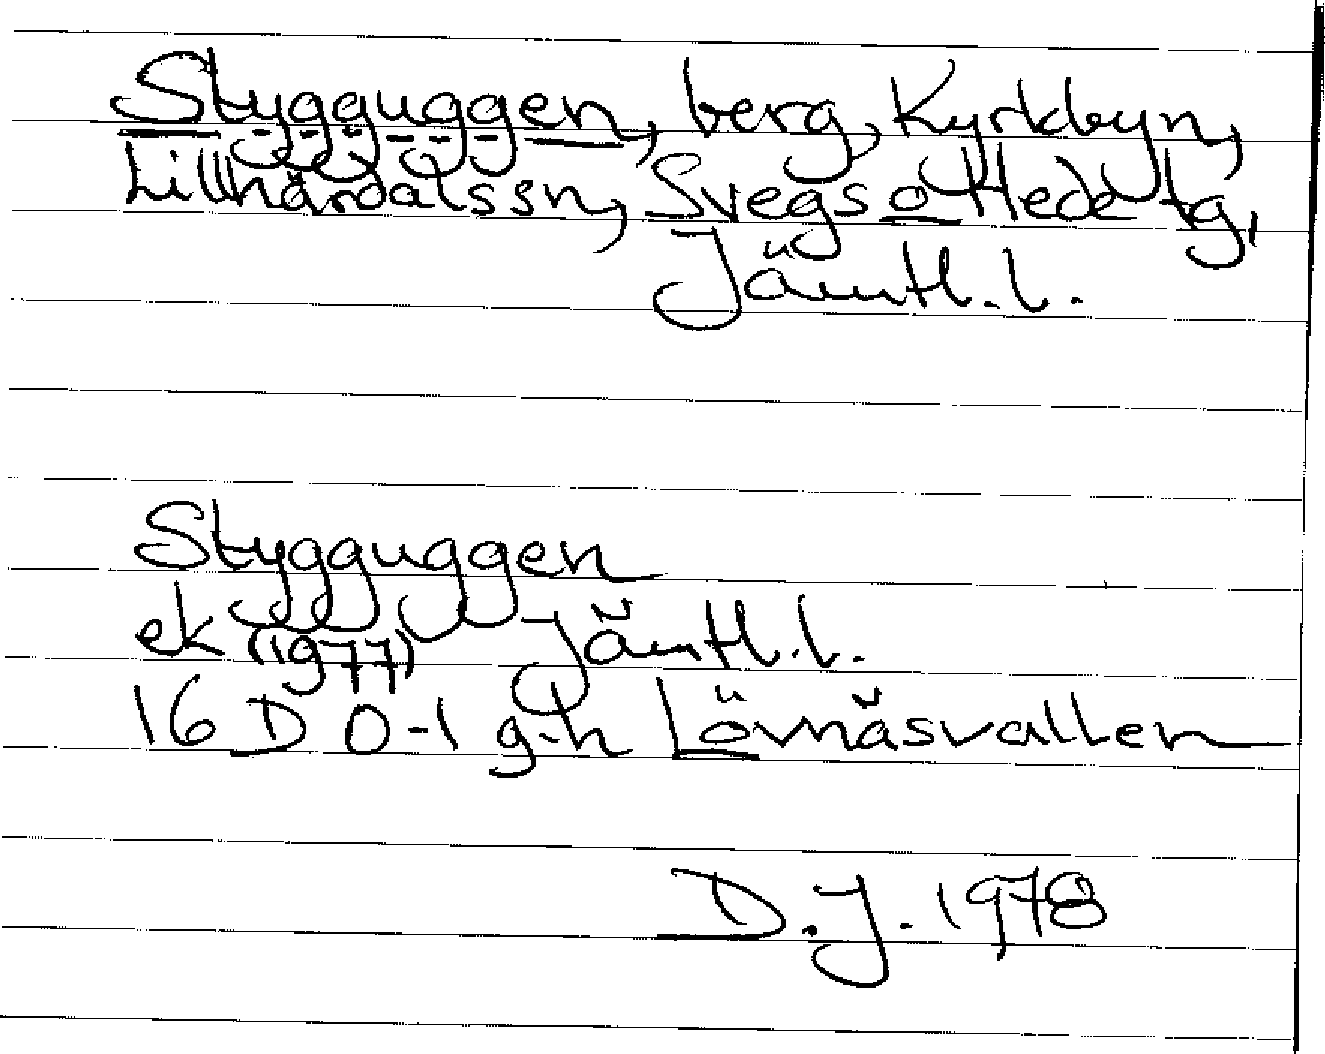 Stygguggen, berg, Kyrkbyn,
Lillhärdalssn, Svegs o Hede tg,
Jämtl. l.
Stygguggen
ek (1977) Jämtl. l.
16 D 0-1 g-h Lövnäsvallen
D. J. 1978